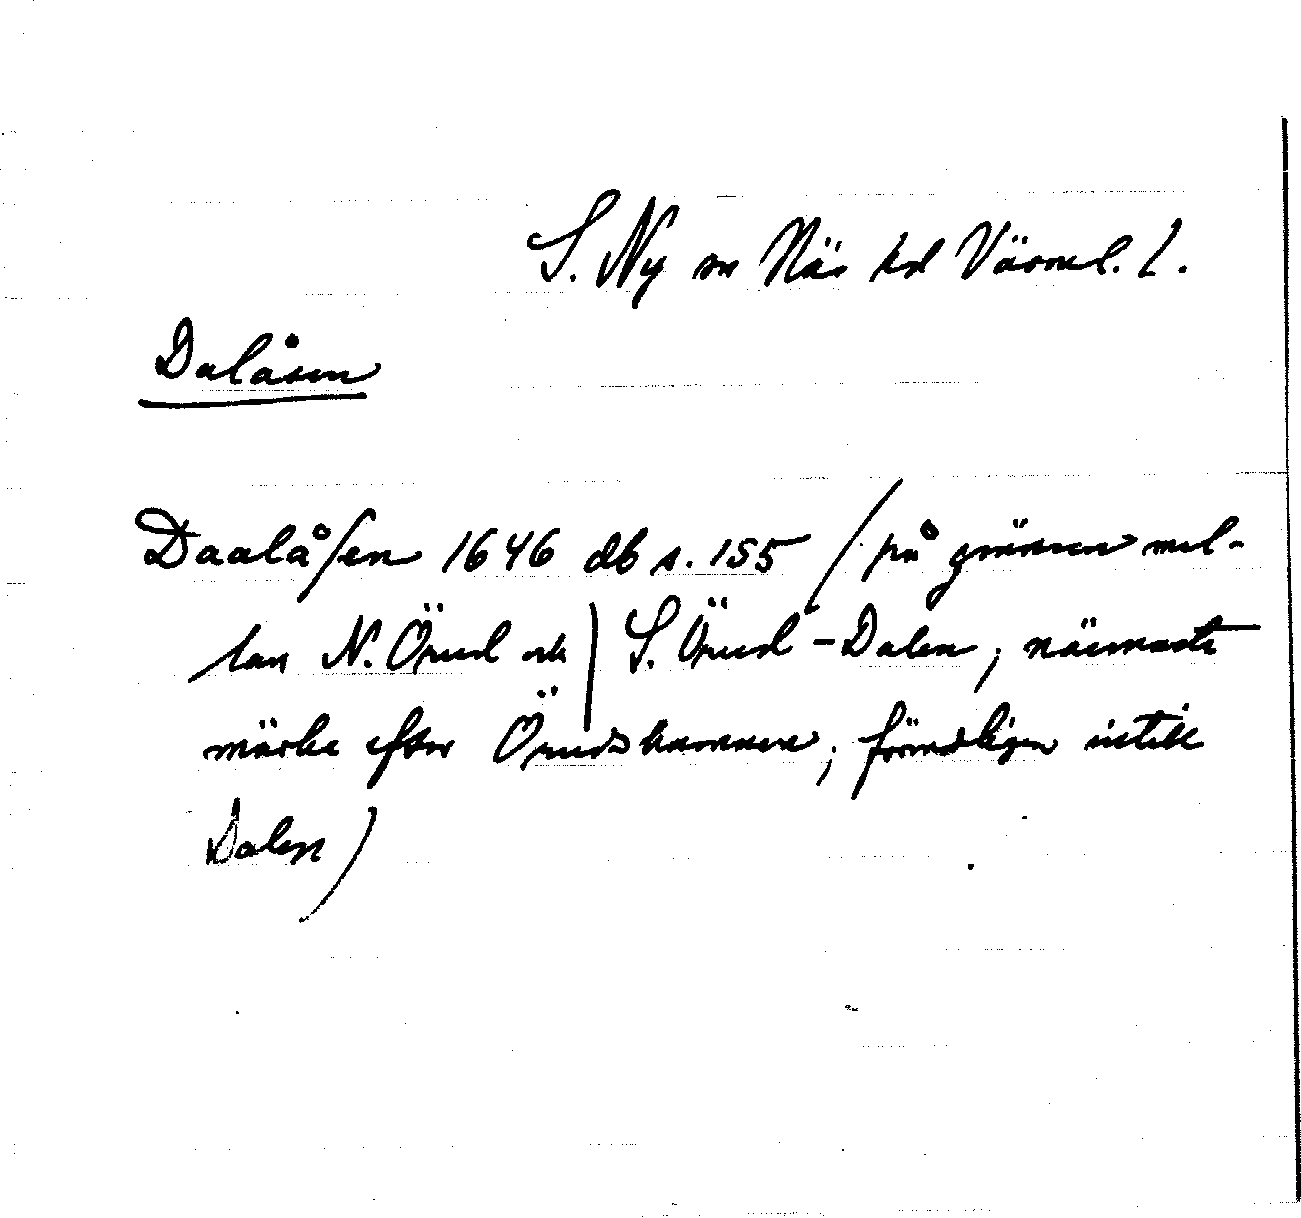 S. Ny sn Näs hd Värml. l.
Dalåsen
Daalåsen 1646 db s. 155 / på gränsen mel-
lan N. Örud och ) S. Örud - Dalen, närmaste
märke efter Örudskvarnen; förmodligen intill
Dalen )